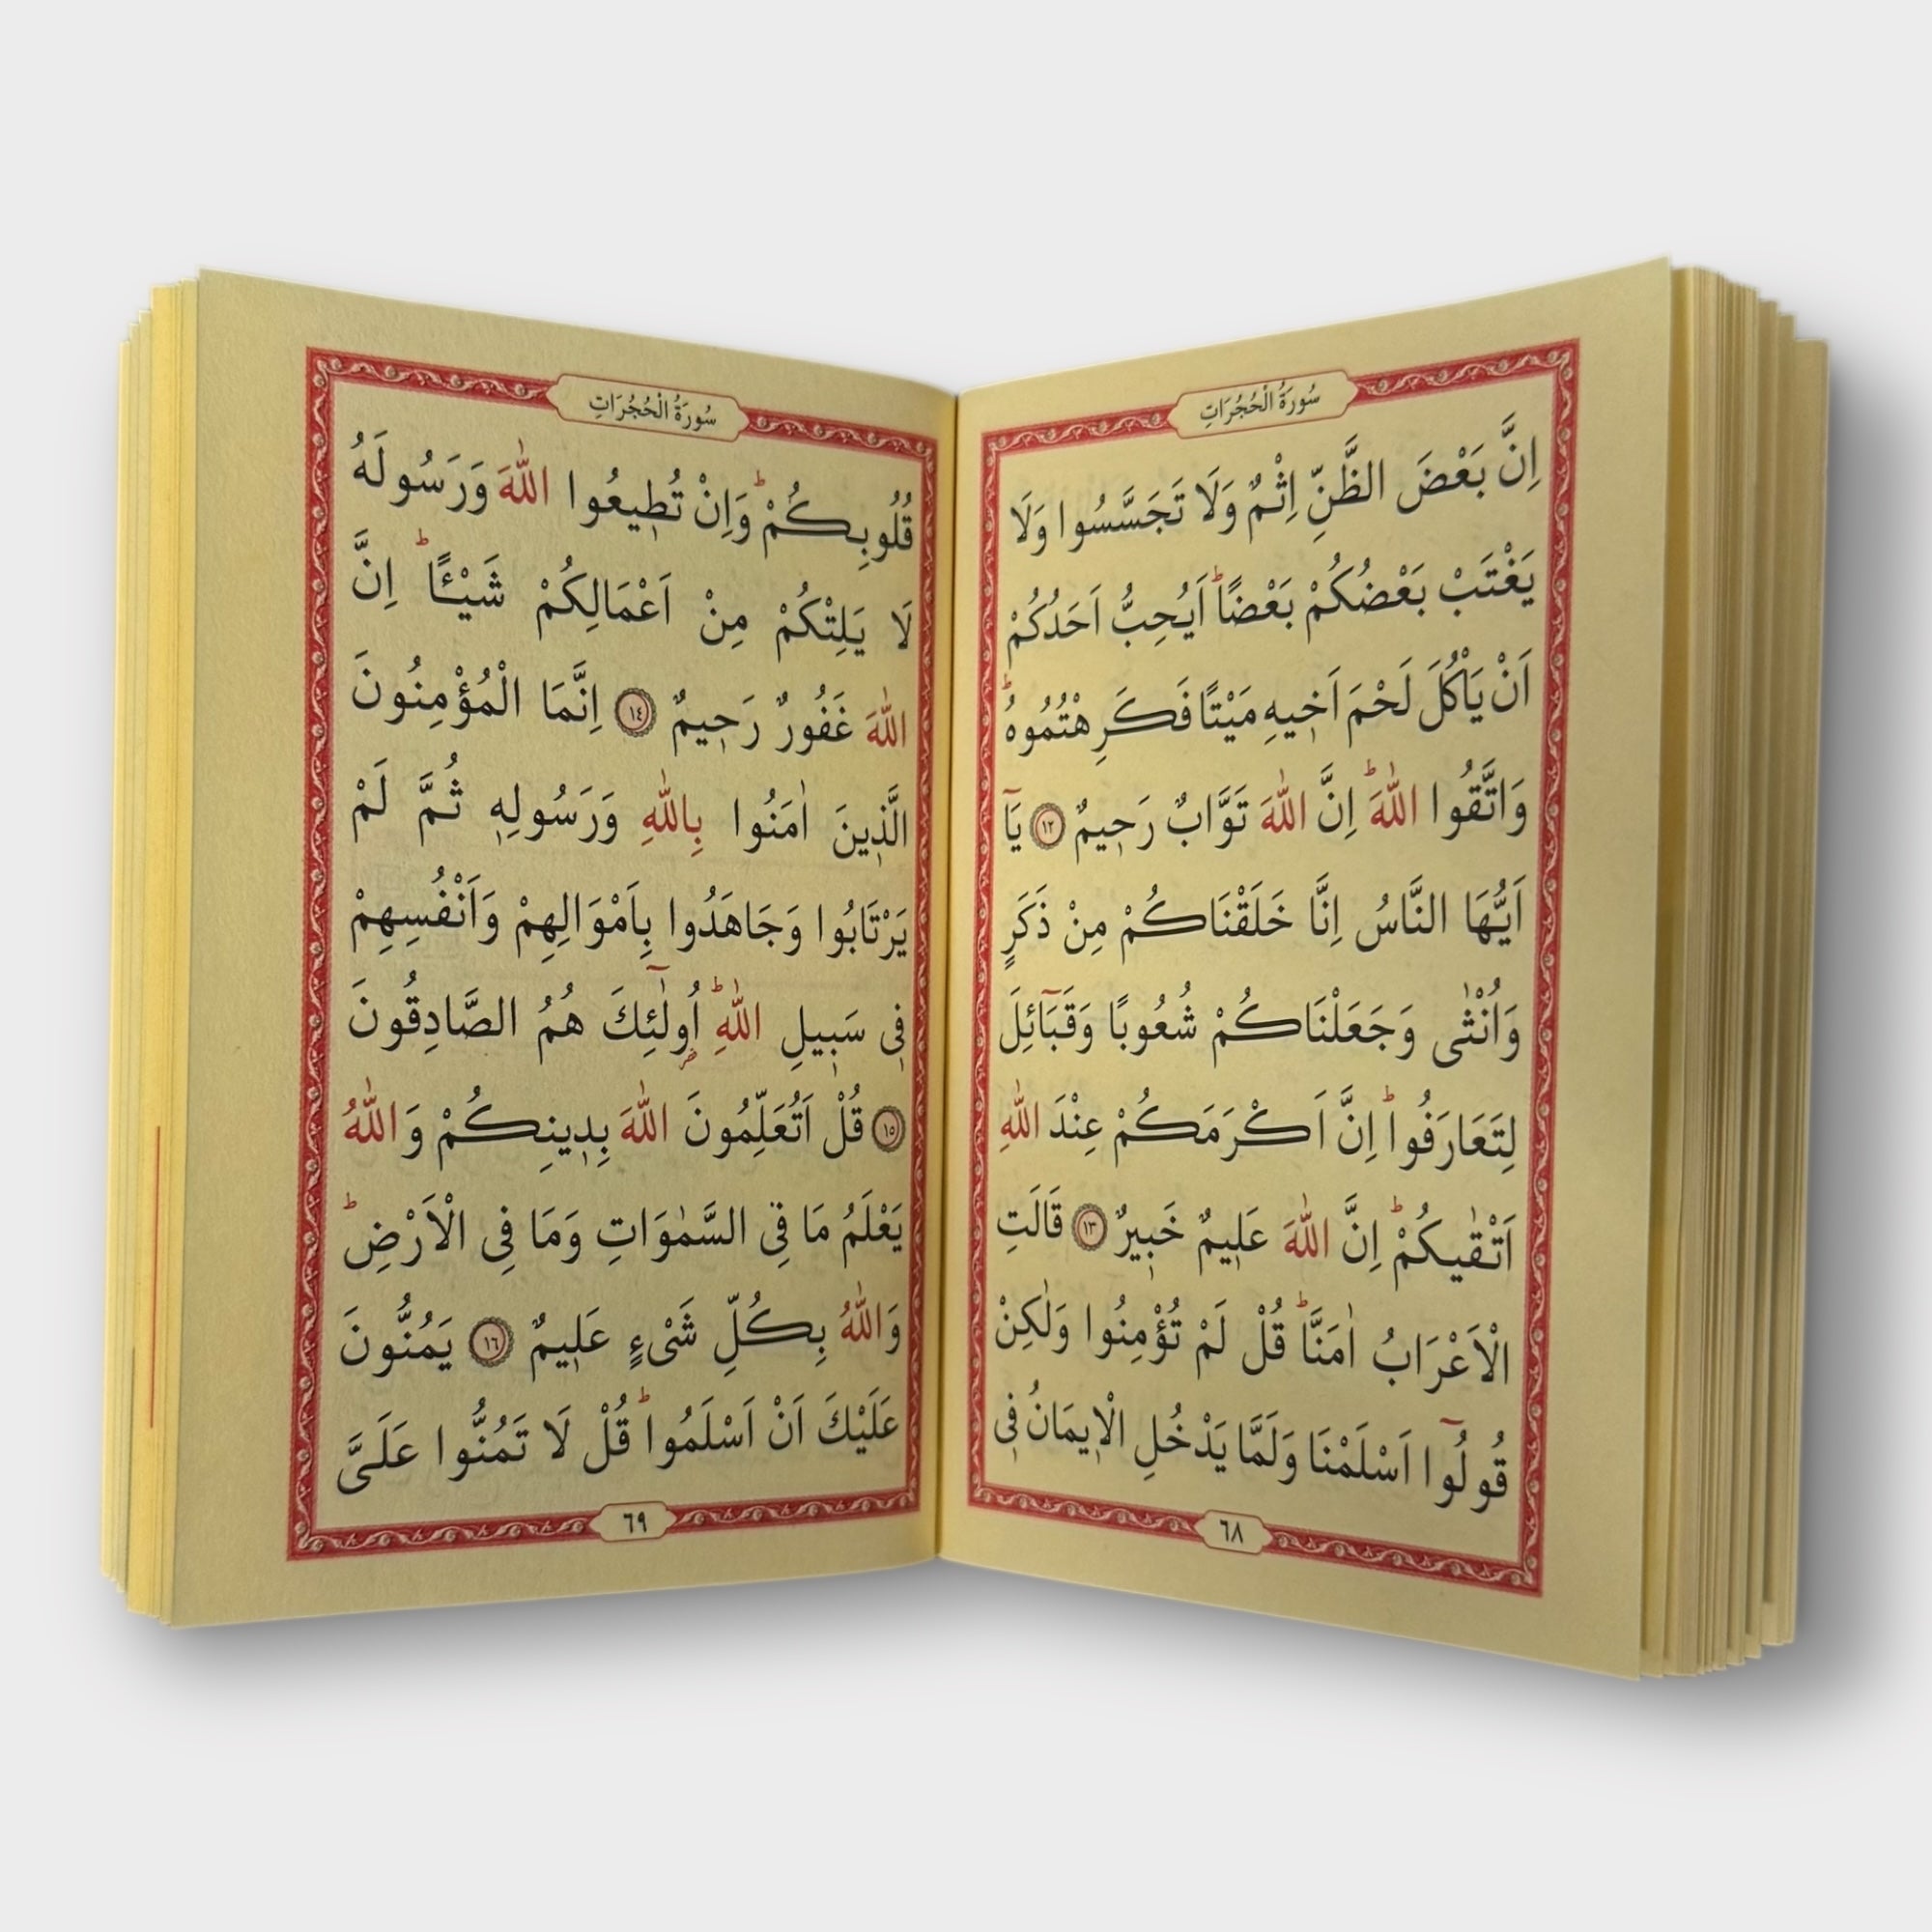 سُورَةُ الْحُجُرَاتِ
اِنَّ بَعْضَ الظَّنِّ اِثْمٌ وَلَا تَجَسَّسُوا وَلَا
يَغْتَبْ بَعْضُكُمْ بَعْضًاۜ اَيُحِبُّ اَحَدُكُمْ
اَنْ يَاْكُلَ لَحْمَ اَخ۪يهِ مَيْتًا فَكَرِهْتُمُوهُۜ
وَاتَّقُوا اللّٰهَۜ اِنَّ اللّٰهَ تَوَّابٌ رَح۪يمٌ ١٢ يَٓا
اَيُّهَا النَّاسُ اِنَّا خَلَقْنَاكُمْ مِنْ ذَكَرٍ
وَاُنْثٰى وَجَعَلْنَاكُمْ شُعُوبًا وَقَبَٓائِلَ
لِتَعَارَفُواۜ اِنَّ اَكْرَمَكُمْ عِنْدَ اللّٰهِ
اَتْقٰيكُمْۜ اِنَّ اللّٰهَ عَل۪يمٌ خَب۪يرٌ ١٣ قَالَتِ
الْاَعْرَابُ اٰمَنَّاۜ قُلْ لَمْ تُؤْمِنُوا وَلٰكِنْ
قُولُٓوا اَسْلَمْنَا وَلَمَّا يَدْخُلِ الْا۪يمَانُ ف۪ي
٦٨
سُورَةُ الْحُجُرَاتِ
قُلُوبِكُمْۜ وَاِنْ تُط۪يعُوا اللّٰهَ وَرَسُولَهُ
لَا يَلِتْكُمْ مِنْ اَعْمَالِكُمْ شَيْـًٔاۜ اِنَّ
اللّٰهَ غَفُورٌ رَح۪يمٌ ١٤ اِنَّمَا الْمُؤْمِنُونَ
الَّذ۪ينَ اٰمَنُوا بِاللّٰهِ وَرَسُولِه۪ ثُمَّ لَمْ
يَرْتَابُوا وَجَاهَدُوا بِاَمْوَالِهِمْ وَاَنْفُسِهِمْ
ف۪ي سَب۪يلِ اللّٰهِۜ اُو۬لٰٓئِكَ هُمُ الصَّادِقُونَ
١٥ قُلْ اَتُعَلِّمُونَ اللّٰهَ بِد۪ينِكُمْ وَاللّٰهُ
يَعْلَمُ مَا فِي السَّمٰوَاتِ وَمَا فِي الْاَرْضِۜ
وَاللّٰهُ بِكُلِّ شَيْءٍ عَل۪يمٌ ١٦ يَمُنُّونَ
عَلَيْكَ اَنْ اَسْلَمُواۜ قُلْ لَا تَمُنُّوا عَلَيَّ
٦٩